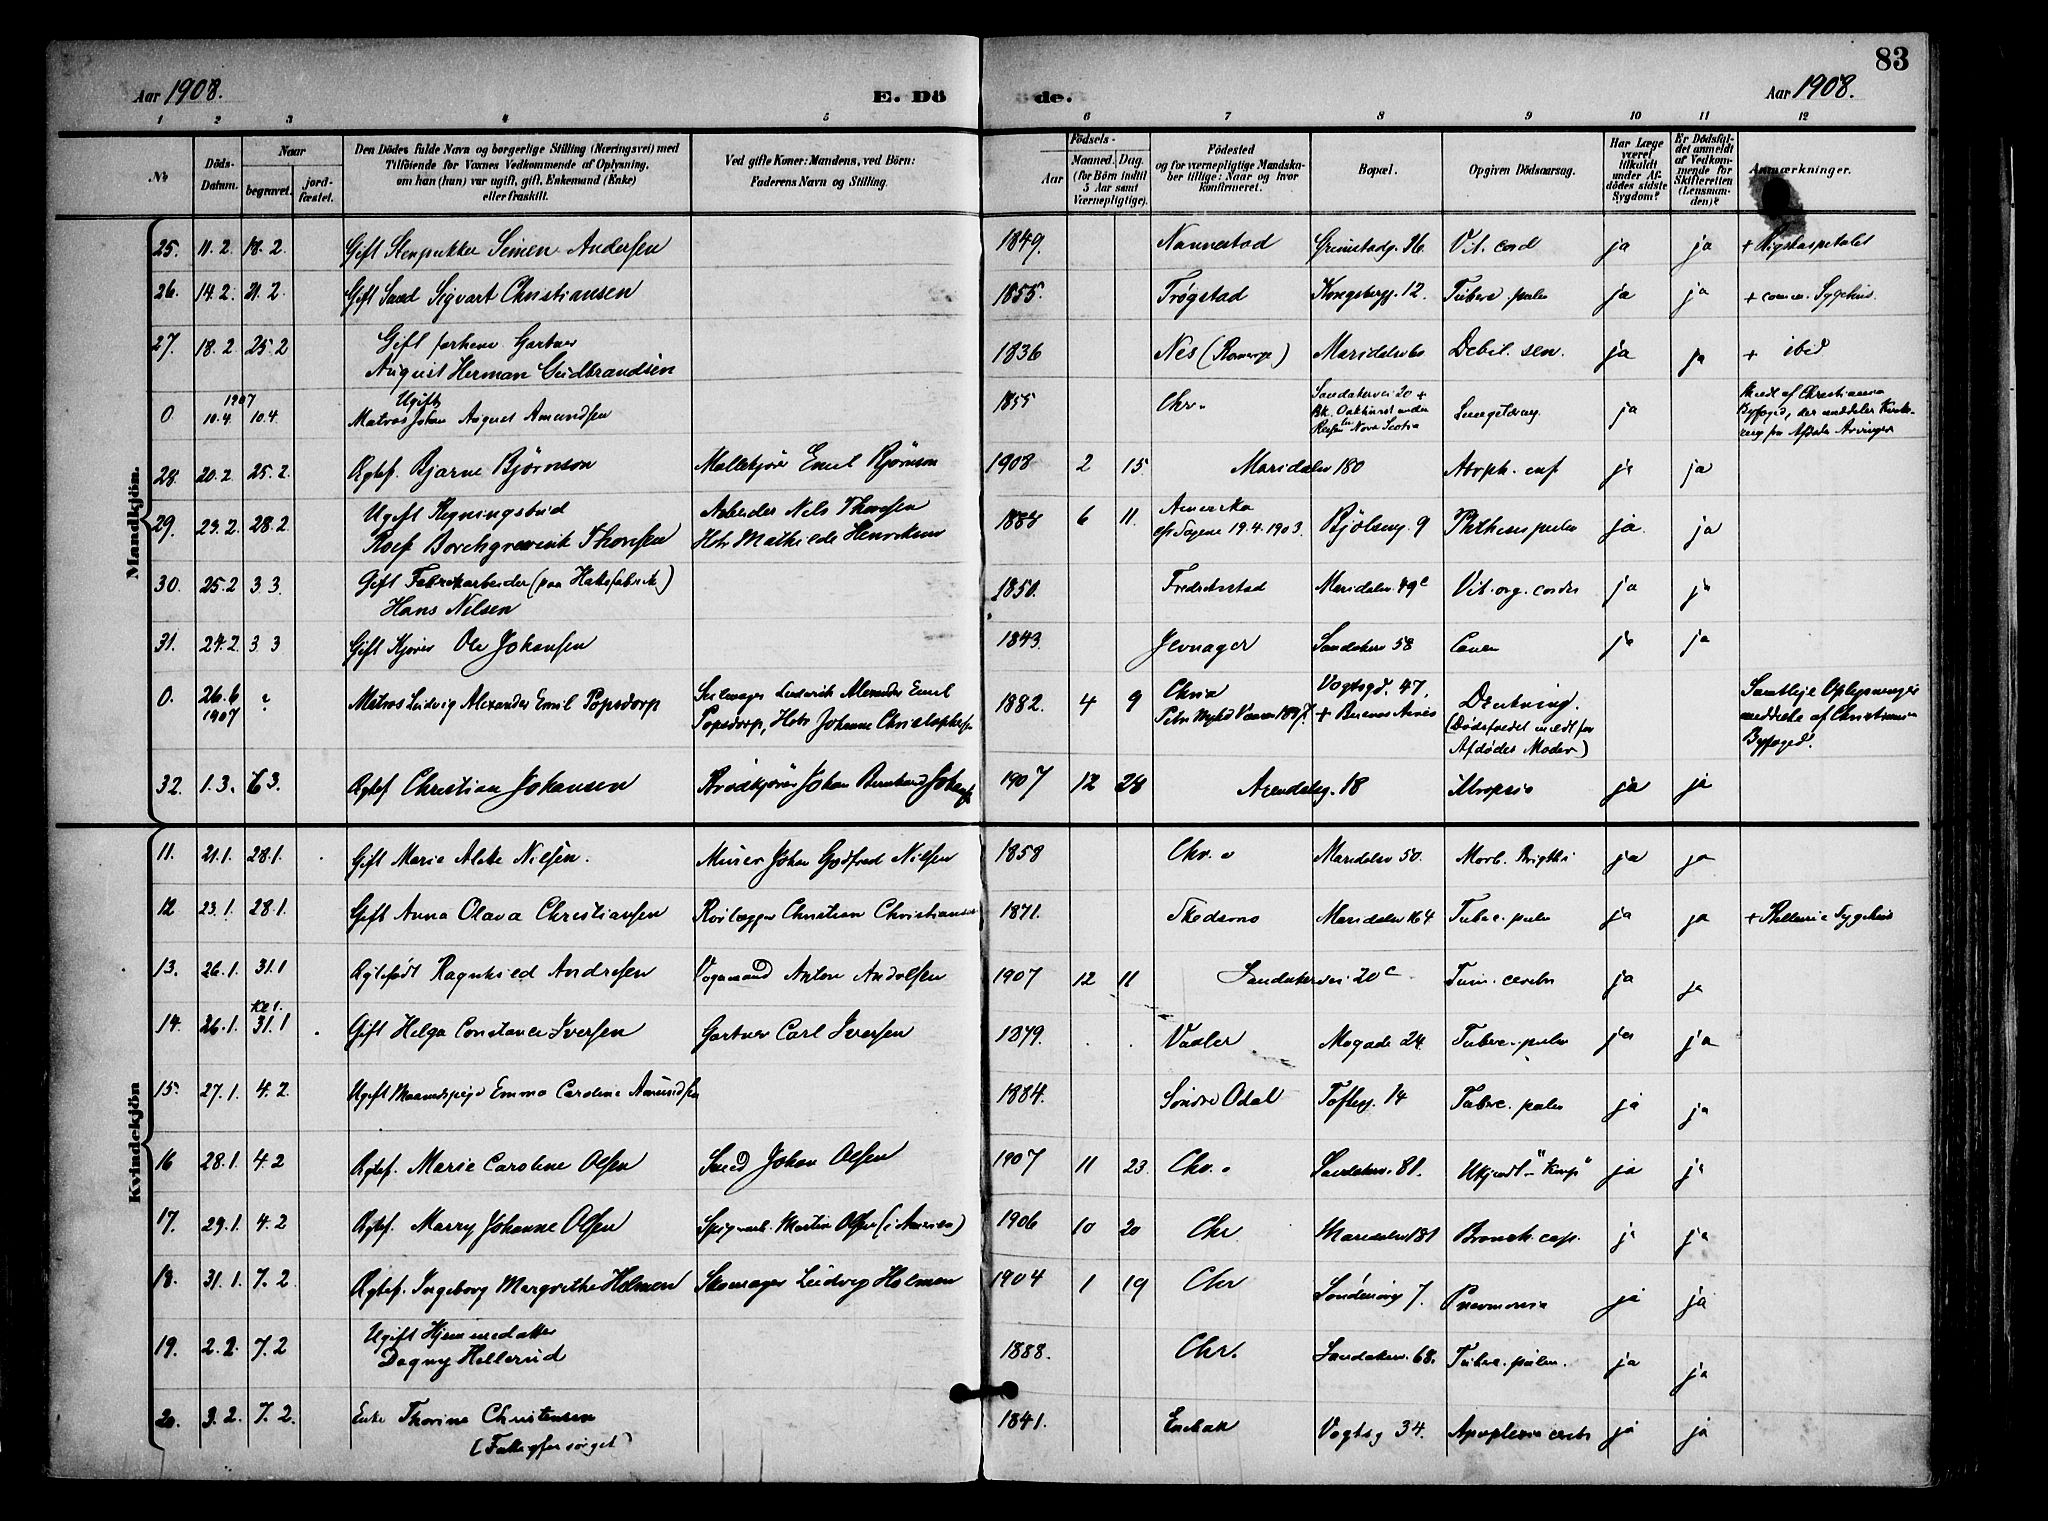 83
Aar 1908.
E. Dö
de.
Aar 1908.
1 2 3 4 5 6 7 8 9 10 11 12
No
Döds-Datum.
Naar
begravet.
jordfæstet.
Den Dödes fulde Navn og borgerlige Stilling (Næringsvei) med
Tilföiende for Voxnes Vedkommende af Oplysning,
om han (hun) var ugift, gift, Enkemand (Enke)
eller fraskilt.
Ved gifte Koner: Mandens, ved Börn:
Faderens Navn og Stilling.
Födsels-
Aar
Maaned. Dag.
(for Börn indtil
5 Aar samt
Værnepligtige).
Födested
og for værnepligtige Mandskaber tillige: Naar og hvor
konfirmeret.
Bopæl.
Opgiven Dödsaarsag.
Har Læge
været
tilkaldt
under Afdödes sidste
Sygdom?
Er Dödsfaldet anmeldt
af Vedkommende for
Skifteretten
(Lensmanden)?
Anmærkninger.
Mandkjön.
25. 11.2. 18.2. Gift Stenpukker Simen Andersen 1849. Nannestad Grimstadg. 26 Vit. cord ja ja + Rigshospitalet
26. 14.2. 21.2. Gift Smed Sigvart Christiansen 1855. Trøgstad Kongsbergg. 12. Tuberc. pulm ja ja + comm. Sygehus.
27. 18.2 25.2 Gift forhenv Gartner
August Herman Gudbrandsen 1836 Nes (Romerge) Maridalsv 60 Debil. sen. ja ja + ibid
0 1907 10.4. 10.4 Ugift
Matros Johan August Amundsen 1855 Chr. Sandakervei 20 +
Bk. Oakhurst under
Reisen til Nova Scotia Lungetæring. ja Meldt af Christiania
Byfoged, der meddeler
fra Afdødes Arvinger
28. 20.2. 25.2. Ægtef. Bjarne Bjørnson Møllekjører Emil Bjørnson 1908 2 15 Maridalsv 180 Atroph. inf ja ja
29. 23.2. 28.2. Ugift Regningsbud
Rolf Borchgrevink Thorsen Arbeider Nils Thorsen
Hstr Mathilde Henriksen 6 11. Amerika
cfr Sagene 19.4.1903. Bjølseng. 9 Phthisis pulm ja. ja
30. 25.2 3.3. Gift Fabrikarbeider (paa Hattefabrik)
Hans Nilsen 1850. Fredriksstad Maridalsv. 49c Vit. org. cordis ja ja
31. 24.2. 3 3 Gift Kjører Ole Johansen 1843. Jevnager Sandakerv 58 Cancer ja ja
0. 26.6
1907 ? Matros Ludvig Alexander Emil Popsdorp Seilmager Ludvik Alexander Emil
Popsdorp, Hstr Johanne Christophersen 1882. 4 9 Chria
Petri Vaaren 1897. Vogtsgd. 47.
+ Buenos Aires Drukning.
(Dødsfaldet meldt for
Afdødes Moder) Samtlige Oplysninger
meddelte af Christiania
Byfoged.
32. 1.3. 6 3. Ægtef Christian Johansen Brødkjører Johan Bernhard Johansen 1907 12 28 Arendalsg. 18 Atropsia ja ja
Kvindekjön
11. 21.1. 28.1. Gift Marie Alette Nielsen. Murer Johan Godfred Nielsen 1858 Chr. Maridalsv 50. Morb. Brigthi ja ja
12 23.1. 28.1. Gift Anna Olava Christiansen Rørlægger Christian Christiansen 1871. Skedsmo Maridalsv 164 Tuberc. pulm ja ja + Sygehus
13. 26.1. 31.1 Ægtefødt Ragnhild Andresen Vognmand Anton Andersen 1907 12 11 Sandakervei 20c Tum. cerebr ja ja
14. 26.1. Kl 1. 31.1 Gift Helga Constance Iversen Gartner Carl Iversen 1879. Vaaler Mogade 24. Tuberc. pulm ja ja
15. 27.1. 4.2. Ugift Maanedspige Emma Caroline Amundsen 1884. Søndre Odal Tofteg. 14 Tuberc. pulm ja ja
16 28.1. 4.2 Ægtef. Marie Caroline Olsen Smed Johan Olsen 1907 11 23. Chr. Sandakerv. 81. Ukjendt - "Krup" ja ja
17. 29.1. 4.2 Ægtef. Marry Johanne Olsen Spigerarb. Martin Olsen (i America) 1906 10 20 Chr. Maridalsv 181 Bronch. cap. ja ja
18. 31.1. 7.2 Ægtef. Ingeborg Margrethe Holmen Skomager Ludvig Holmen 1904 1 19 Chr Søndenvg 7. Pnevmonia ja ja
19. 2.2. 7.2 Ugift Hjemmedatter
Dagny Hellerud 1888. Chr. Sandakerv. 68. Tuberc. pulm. ja ja
20. 3.2. 7.2. Enke Thorine Christensen
(Fattigforsørget) 1841. Enebak Vogtsg 34. Apoplexia cerebr ja ja